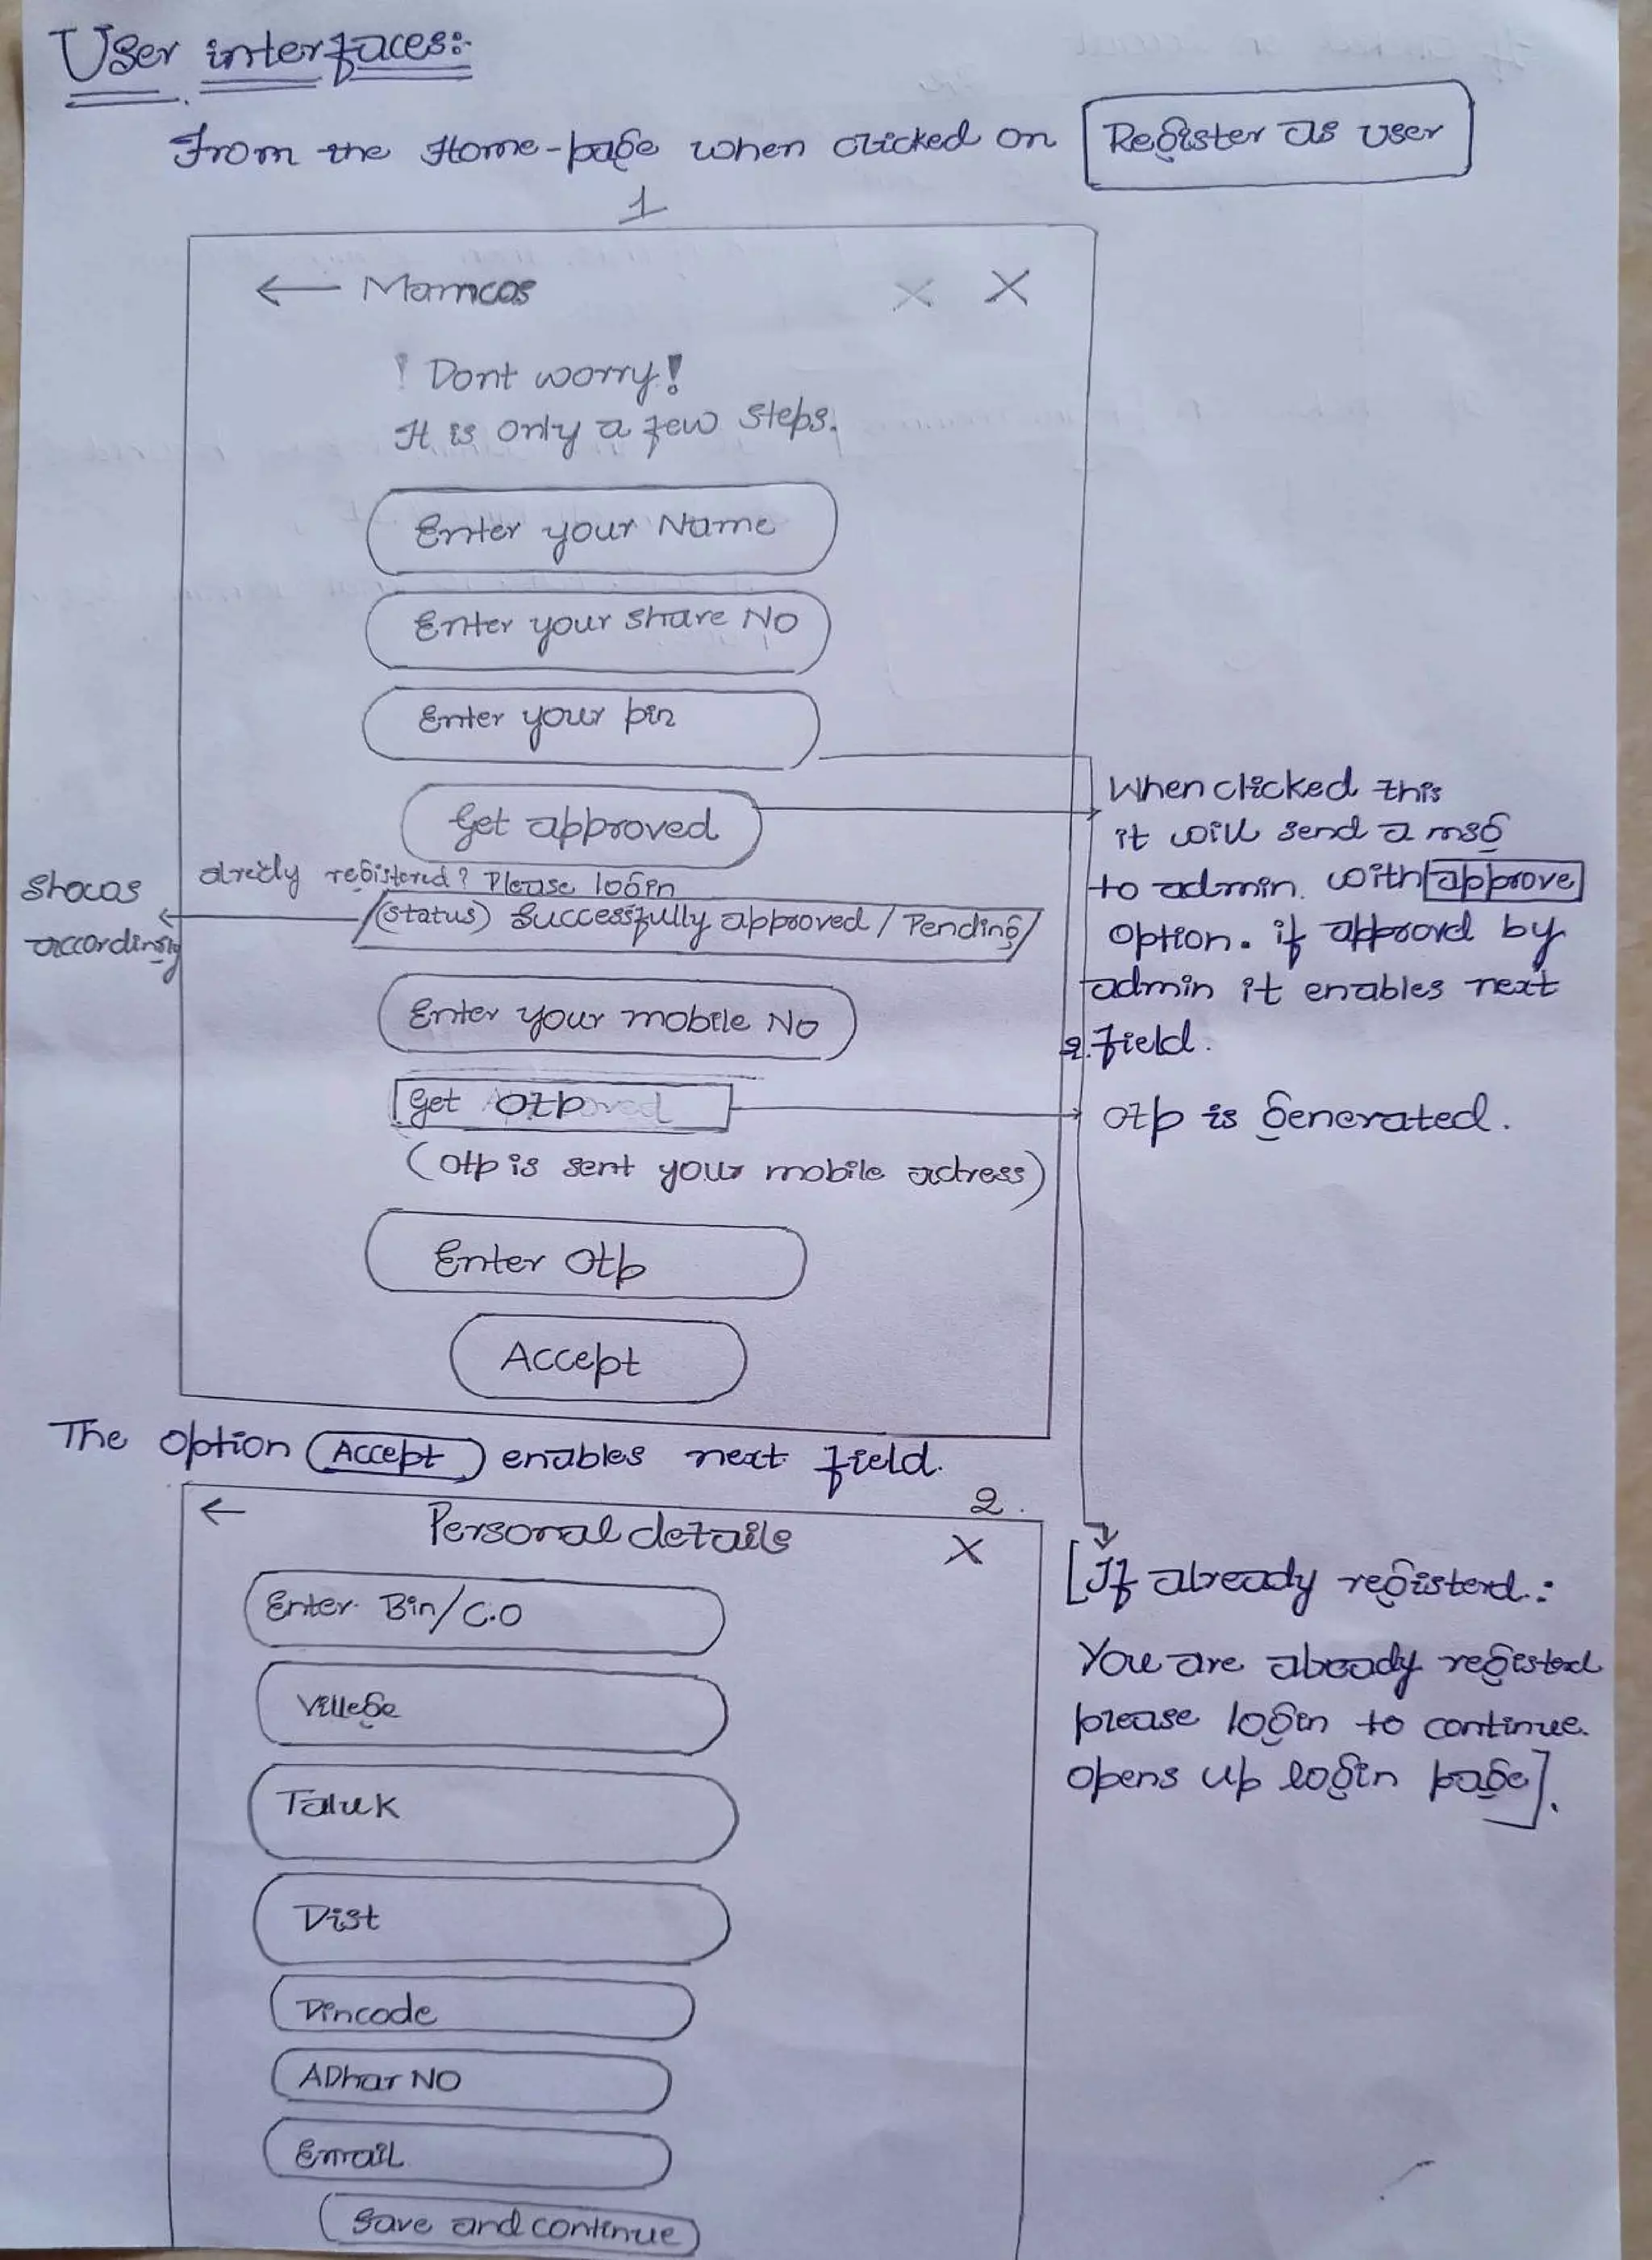 User interfaces:-
From the Home-page when clicked on Register as user
1
← Mamcos X X
! Dont worry!
It is only a few steps.
Enter your Name
Enter your share No
Enter your pin
Get approved
When clicked this
it will send a msg
to admin. with approve
option. if approvd by
admin it enables next
2. field.
alredy registered? Please login
(status) Successfully approved / Pending
shows
accordingly
Enter your mobile No
Get Otp
Otp is generated.
(Otp is sent your mobile adress)
Enter Otp
Accept
The option Accept enables next field.
2.
← Personal details X
Enter Bin/C.O
Villege
Taluk
Dist
Pincode
ADhar NO
Email
Save and continue
[If already registerd:
You are already registed
please login to continue.
opens up login page].